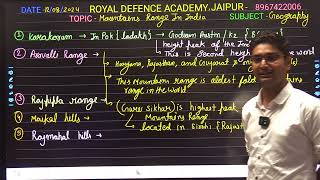 DATE:-12/09/2024 ROYAL DEFENCE ACADEMY JAIPUR- 8967422006
TOPIC - Mountains Range In India SUBJECT- Geography
① Karakoram → In Pok {Ladakh} → Godwin Austin / K2
height peak of the
This is second heigh
the word
② Aravalli Range → Haryana, Rajasthan, and Gujarat
This Mountain range is oldest fold
range in the world
③ range → (Guru Sikhar) is highest peak
Mountains Range
located in Sirohi {Rajast
④ Maikal hills →
⑤ Rajmahal hills →